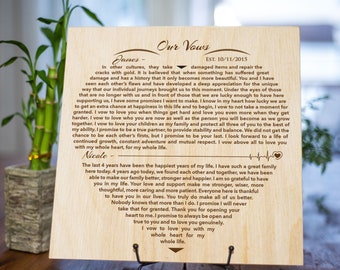 Our Vows
James - EST. 10/11/2015
In other cultures, they take damaged items and repair the
cracks with gold. It is believed that when something has suffered great
damage and has a history that it only becomes more beautiful. You and I have
seen each other's flaws and have developed a deep appreciation for the unique
way that our individual journeys brought us to this moment. Under the eyes of those
that are no longer with us and in front of those that we are lucky enough to have here
supporting us, I have some promises I want to make. I know in my heart how lucky we are
to get an extra chance at happiness in this life and to begin, I vow to not take a moment for
granted. I vow to love you when things get hard and love you even more when they get
harder. I vow to love who you are now as well as the person you will become as we grow
together. I vow to love your children as my family and protect all three of you to the best of
my ability. I promise to be a true partner; to provide stability and balance. We did not get the
chance to be each other's firsts, but I promise to be your last. I look forward to a life of
continued growth, constant adventure and mutual respect. I vow above all to love you
with my whole heart, for my whole life.
Nicole -
The last 4 years have been the happiest years of my life. I have such a great family
here today. 4 years ago today, we found each other and together, we have been
able to make our family better, stronger and happier. I am so grateful to have
you in my life. Your love and support make me stronger, wiser, more
thoughtful, more caring and more patient. Everyone here is thankful
to have you in our lives. You truly do make all of us better.
Nobody knows that more than I do. I promise I will never
take that for granted. Thank you for opening your
heart to me. I promise to always be open and
true to you and to love you for who you are.
I vow to love you with my
whole heart for my
whole life.